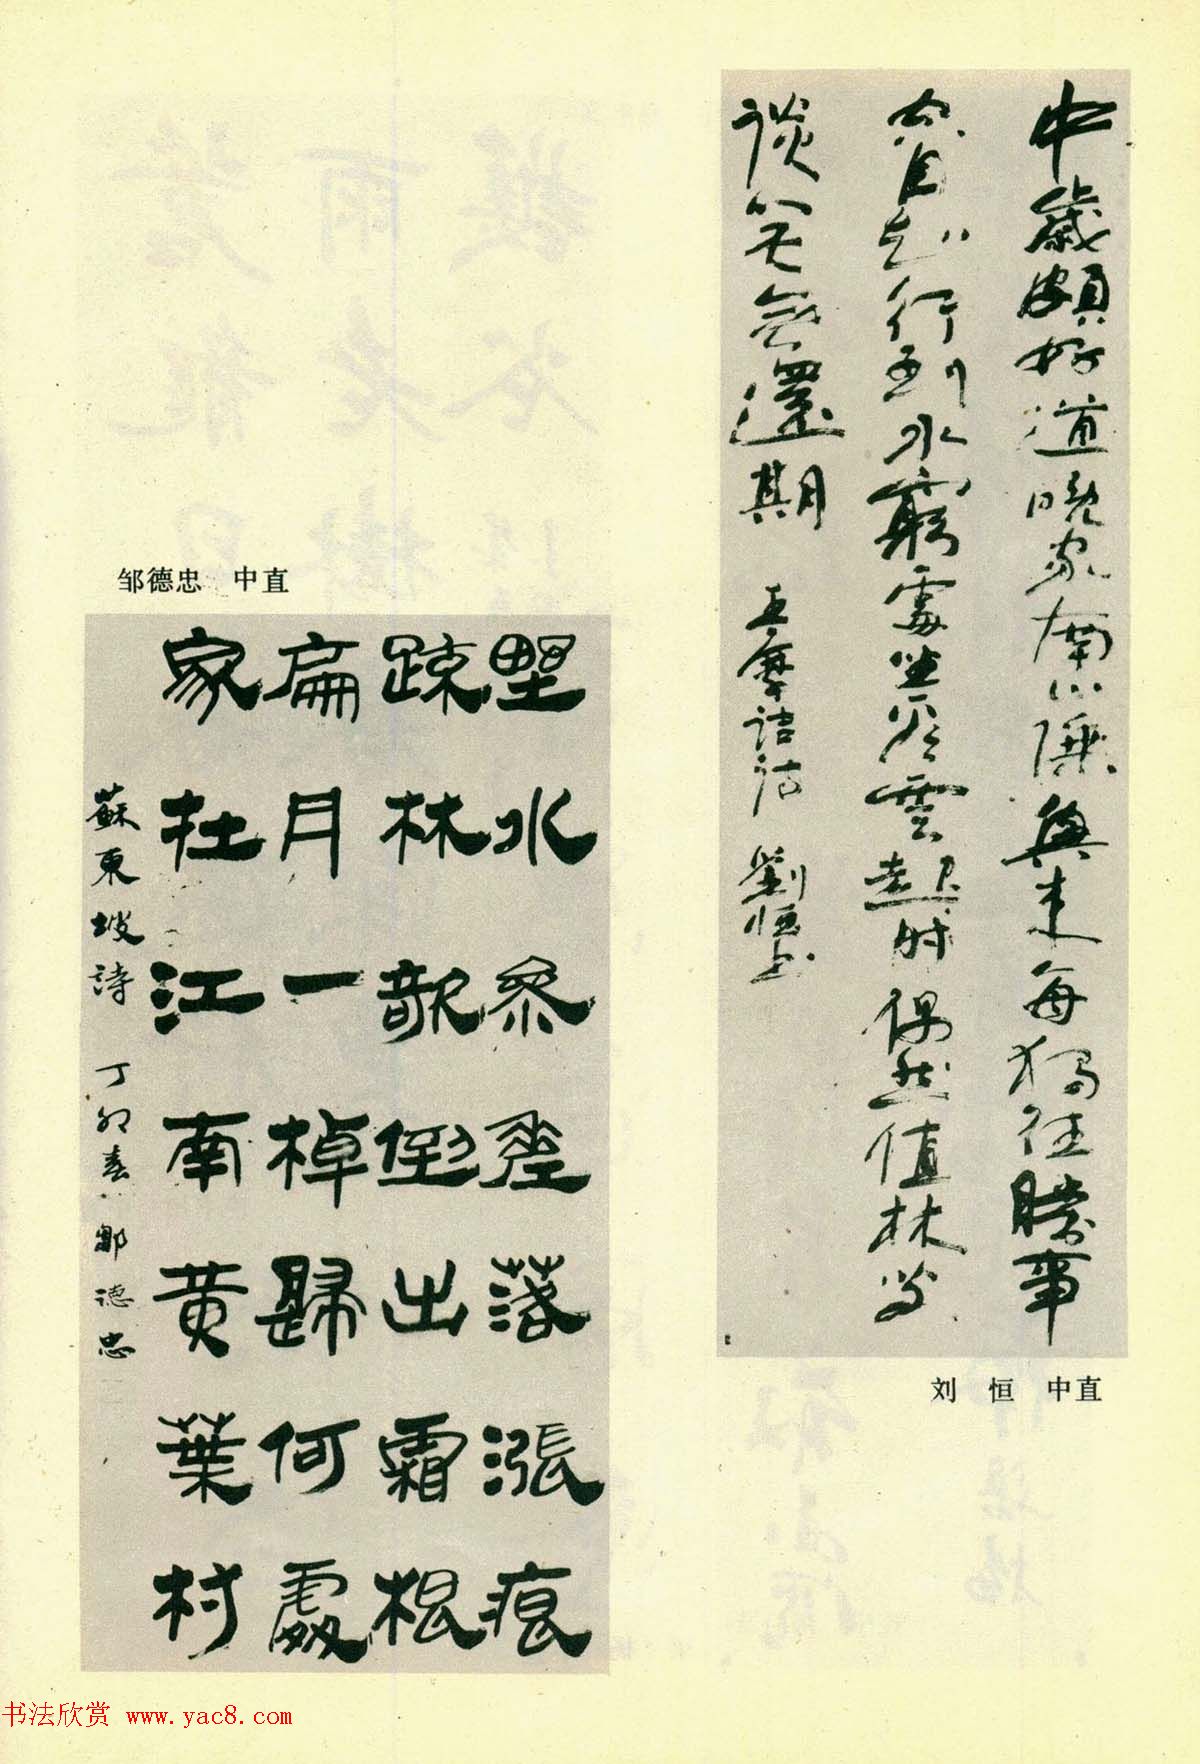 中歲頗好道晚家南山陲興来每獨往勝事
空自知行到水窮處坐看雲起時偶然值林叟
談笑無還期 王摩詰詩 劉恒書
刘 恒 中直
邹德忠 中直
野水参差落漲痕
疎林欹倒出霜根
扁舟一棹歸何處
家在江南黄葉村
蘇東坡詩 丁卯春 鄒德忠
书法欣赏 www.yac8.com